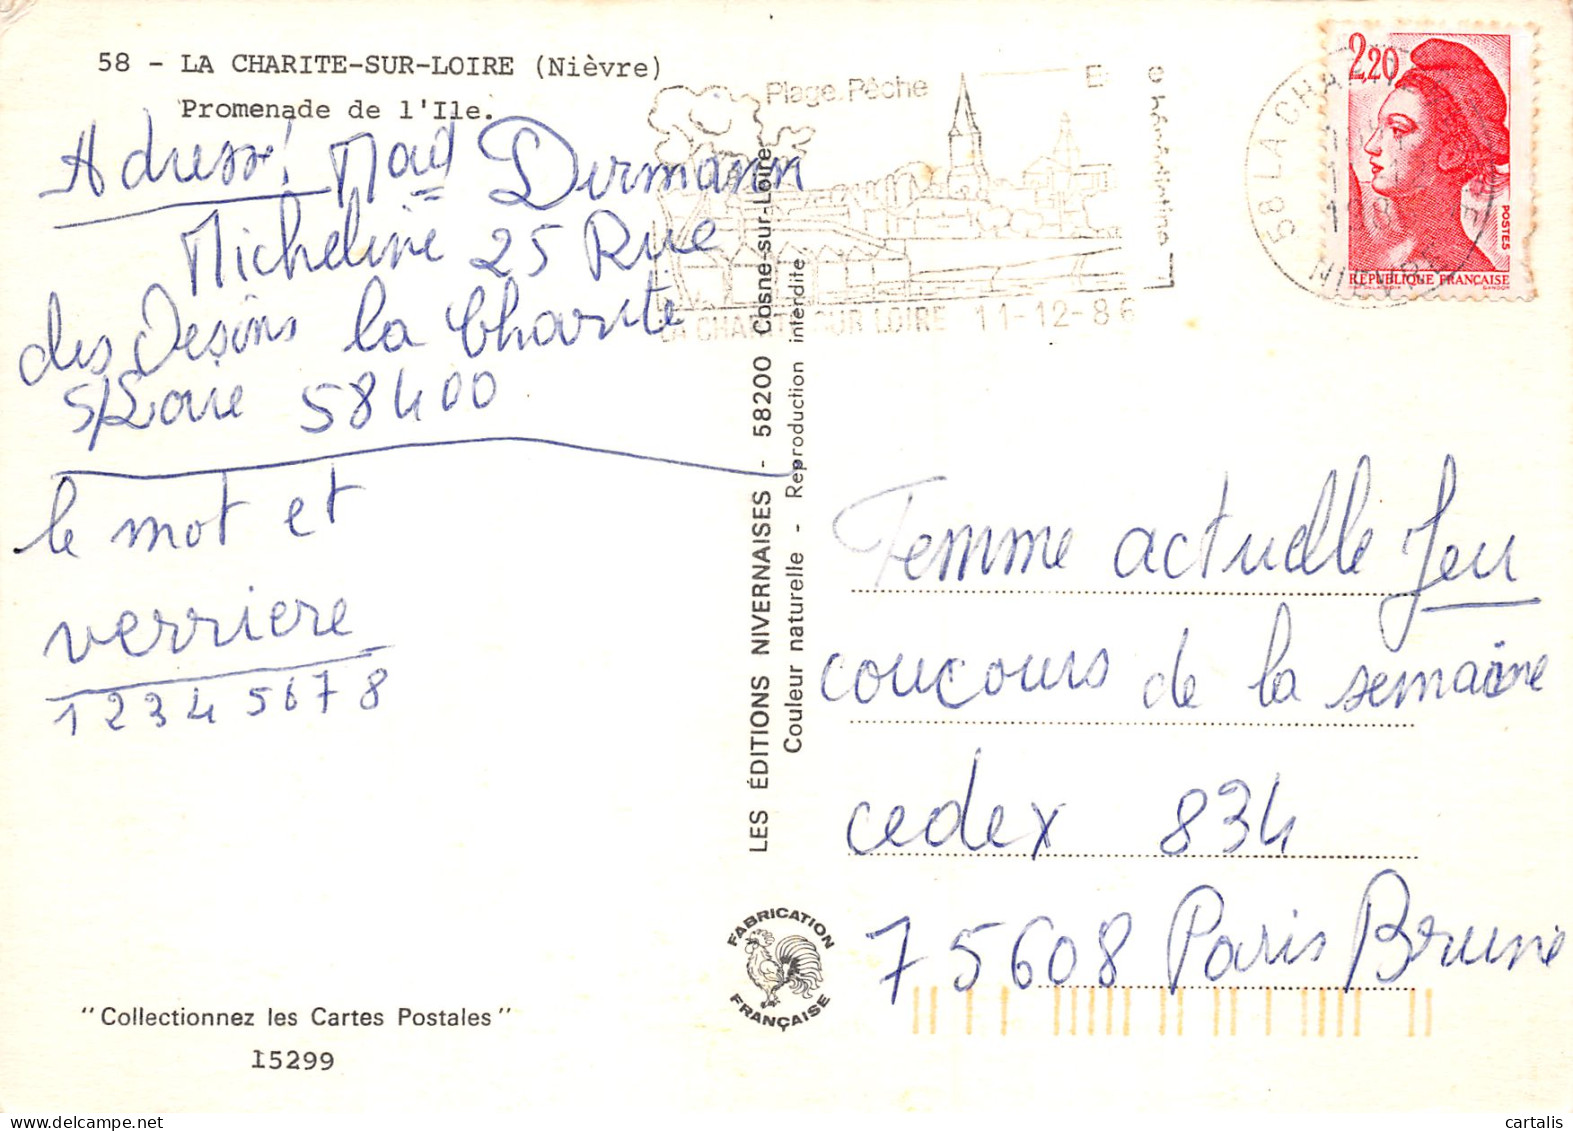 58 - LA CHARITE-SUR-LOIRE (Nièvre)
Promenade de l'Ile.
Adresse! Mad Dirmann
Micheline 25 Rue
des Desins la Charité
S/Loire 58400
le mot et
verriere
1 2 3 4 5 6 7 8
"Collectionnez les Cartes Postales"
15299
LES ÉDITIONS NIVERNAISES - 58200 Cosne-sur-Loire
Couleur naturelle - Reproduction interdite
FABRICATION
FRANÇAISE
Plage. Pêche
LA CHARITE SUR LOIRE 11-12-86
58 LA CHA
2,20
POSTES
RÉPUBLIQUE FRANÇAISE
GANDON
Femme actuelle Jeu
coucours de la semaine
cedex 834
75608 Paris Brune
cartalis